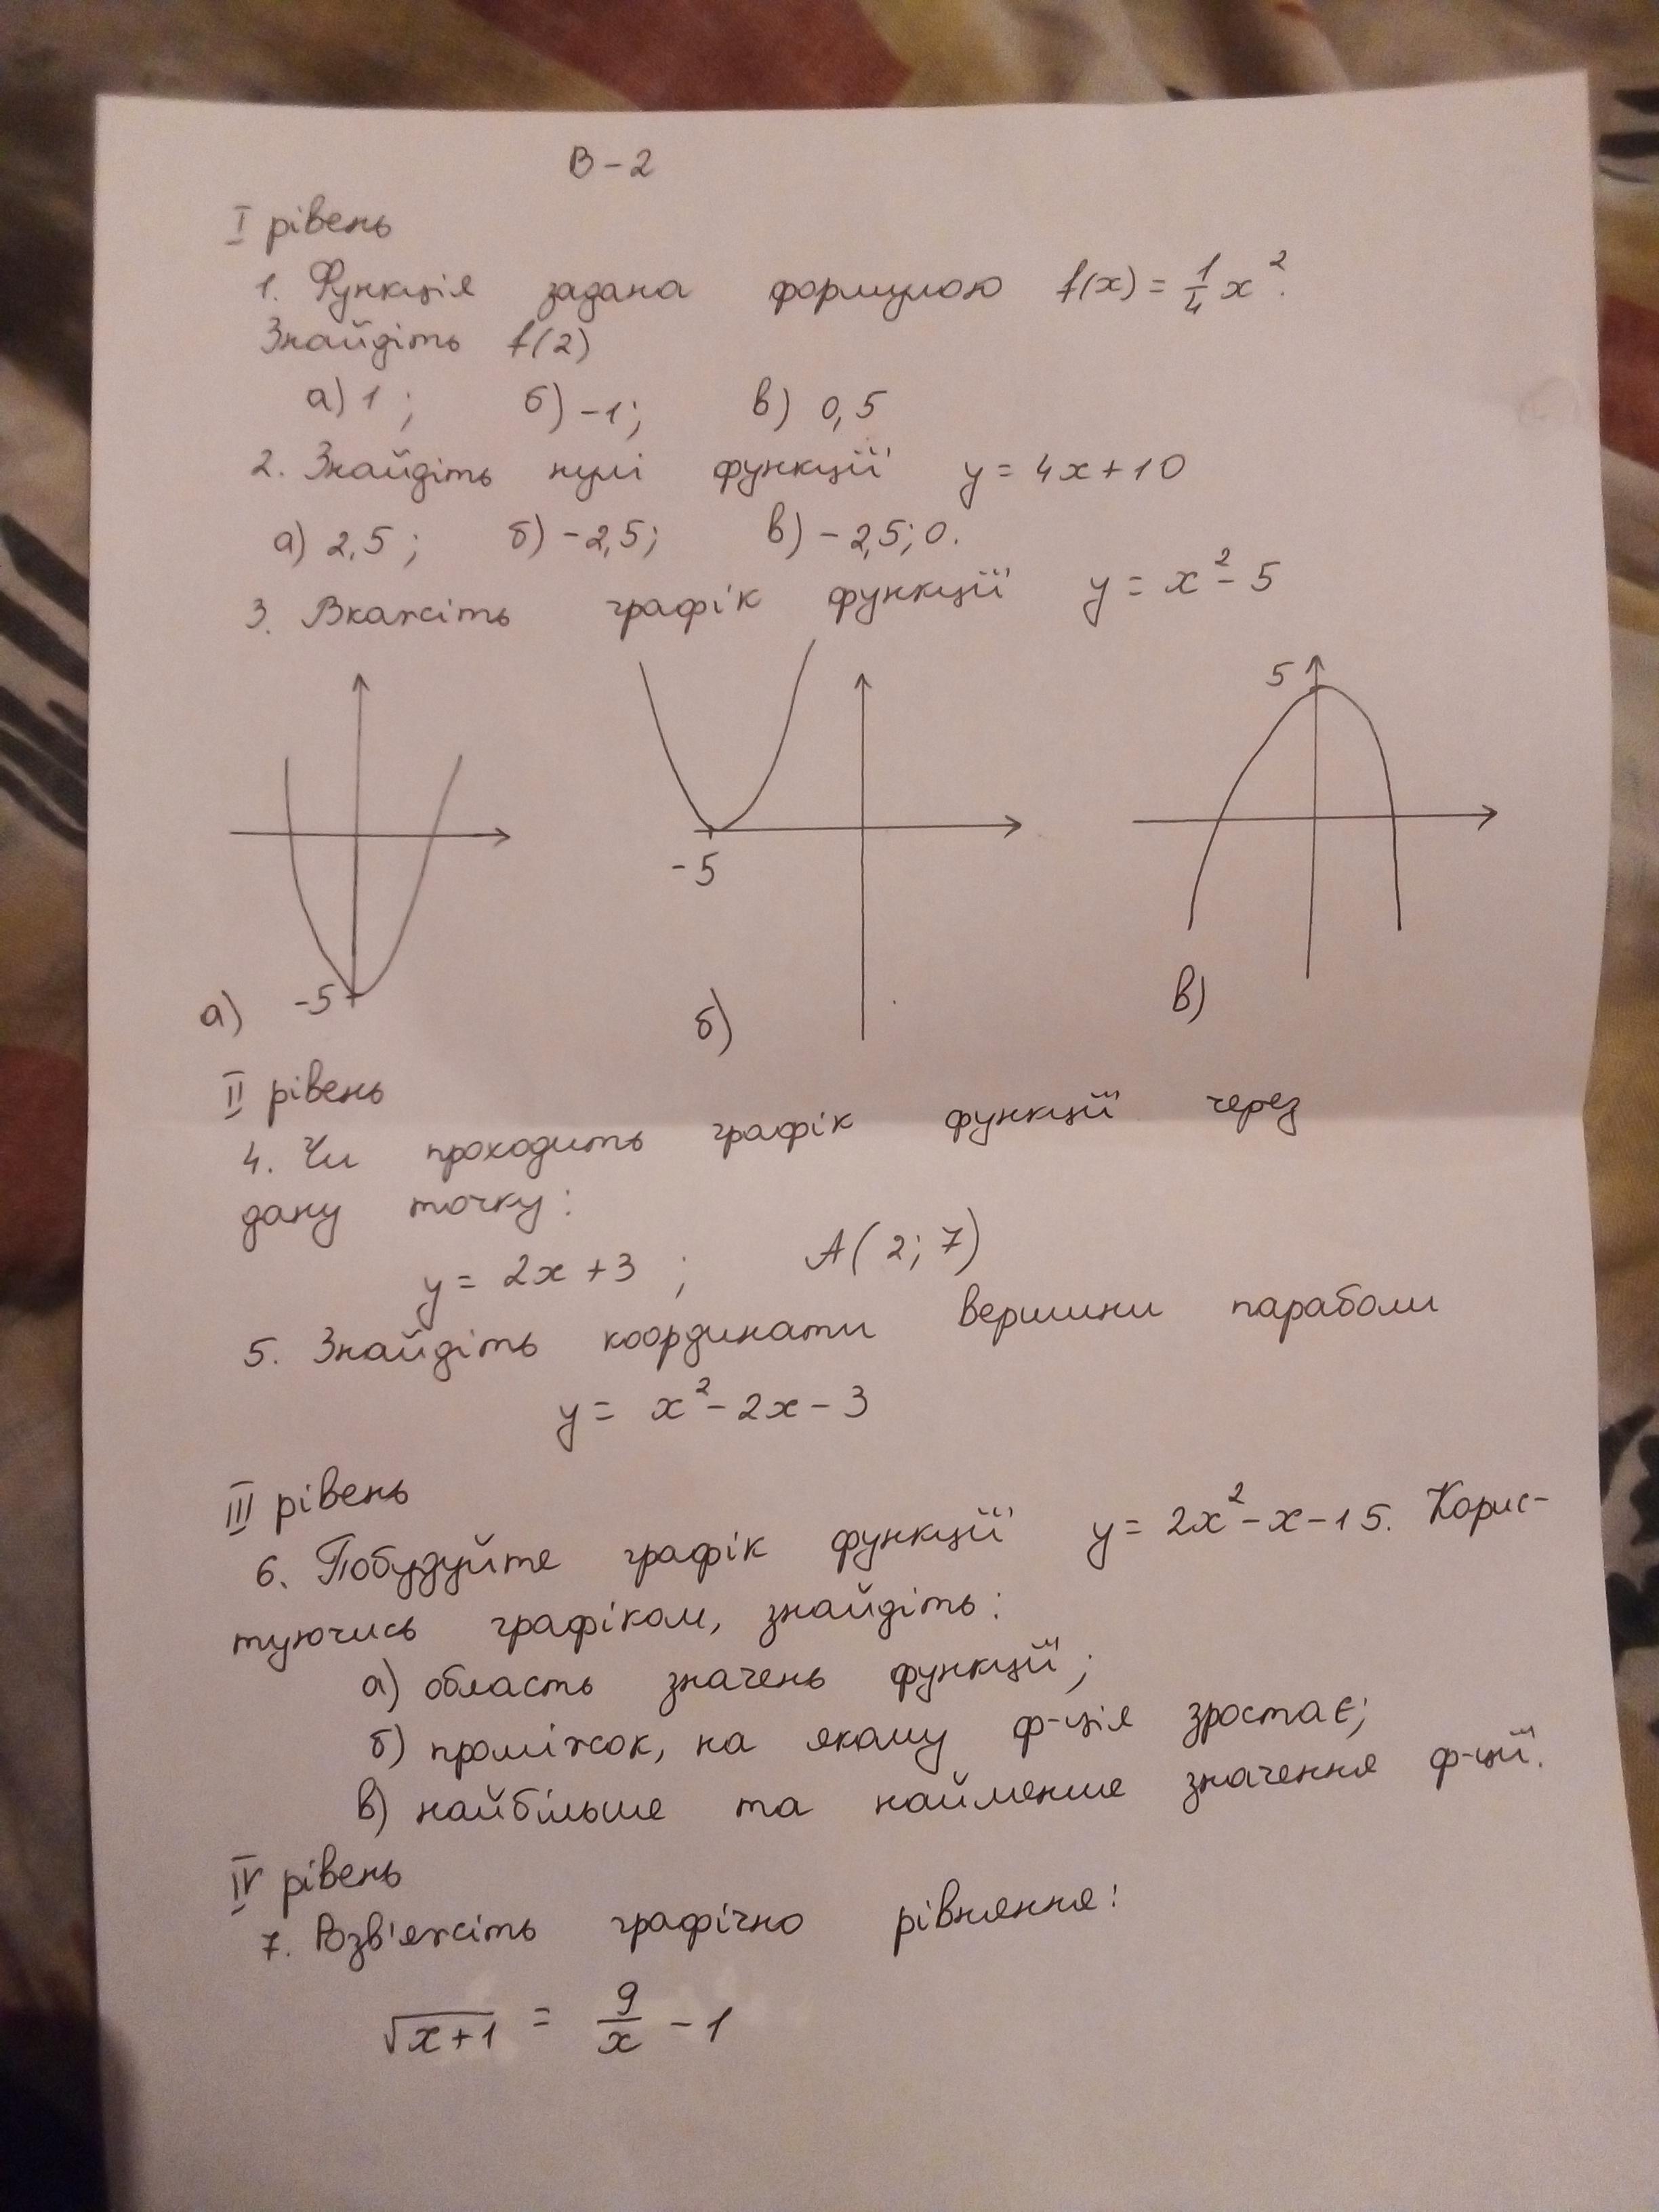 В-2
I рівень
1. Функція задана формулою f(x) = 1/4 x².
Знайдіть f(2)
а) 1; б) -1; в) 0,5
2. Знайдіть нулі функції y = 4x+10
а) 2,5; б) -2,5; в) -2,5; 0.
3. Вкажіть графік функції y = x² - 5
5
-5
-5
а) б) в)
II рівень
4. Чи проходить графік функції через
дану точку:
y = 2x + 3 ; A(2; 7)
5. Знайдіть координати вершини параболи
y = x² - 2x - 3
III рівень
6. Побудуйте графік функції y = 2x² - x - 15. Корис-
туючись графіком, знайдіть:
а) область значень функції;
б) проміжок, на якому ф-ція зростає;
в) найбільше та найменше значення ф-ції.
IV рівень
7. Розв'яжіть графічно рівняння:
√x+1 = 9/x - 1